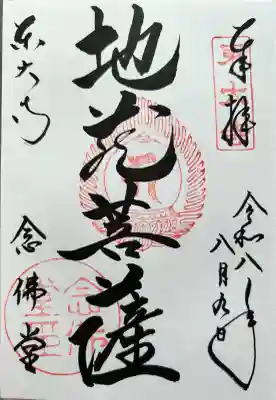 奉拝
令和八年
八月九日
地蔵菩薩
東大寺
念佛堂